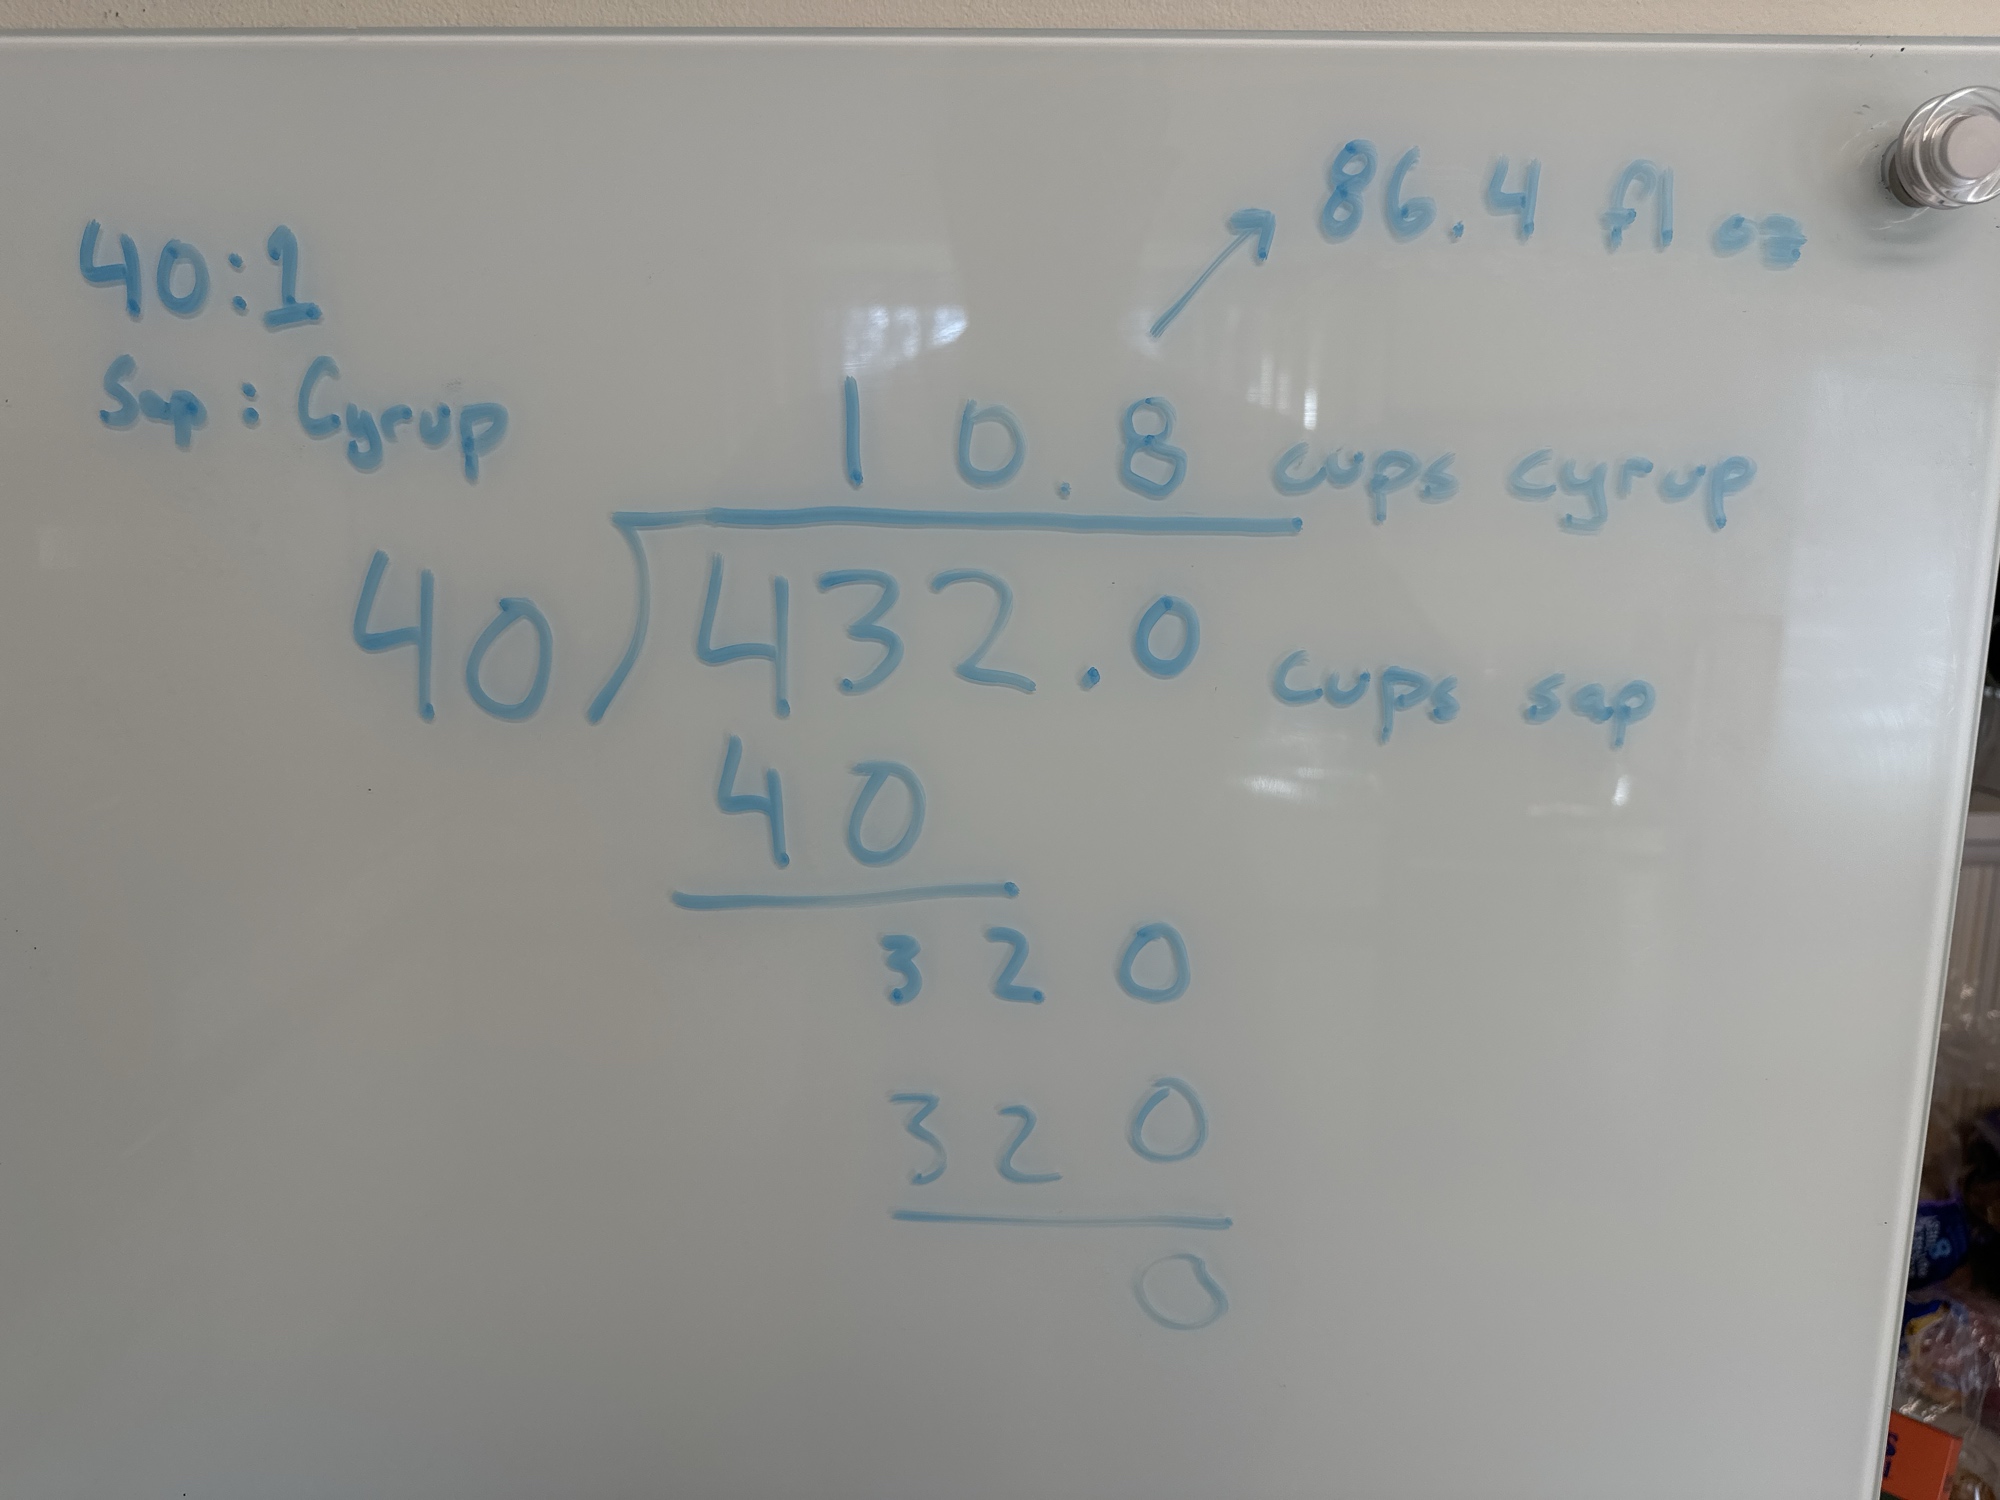 86.4 fl oz
40:1
Sap : Cyrup
10.8 cups cyrup
40 432.0 cups sap
40
320
320
0